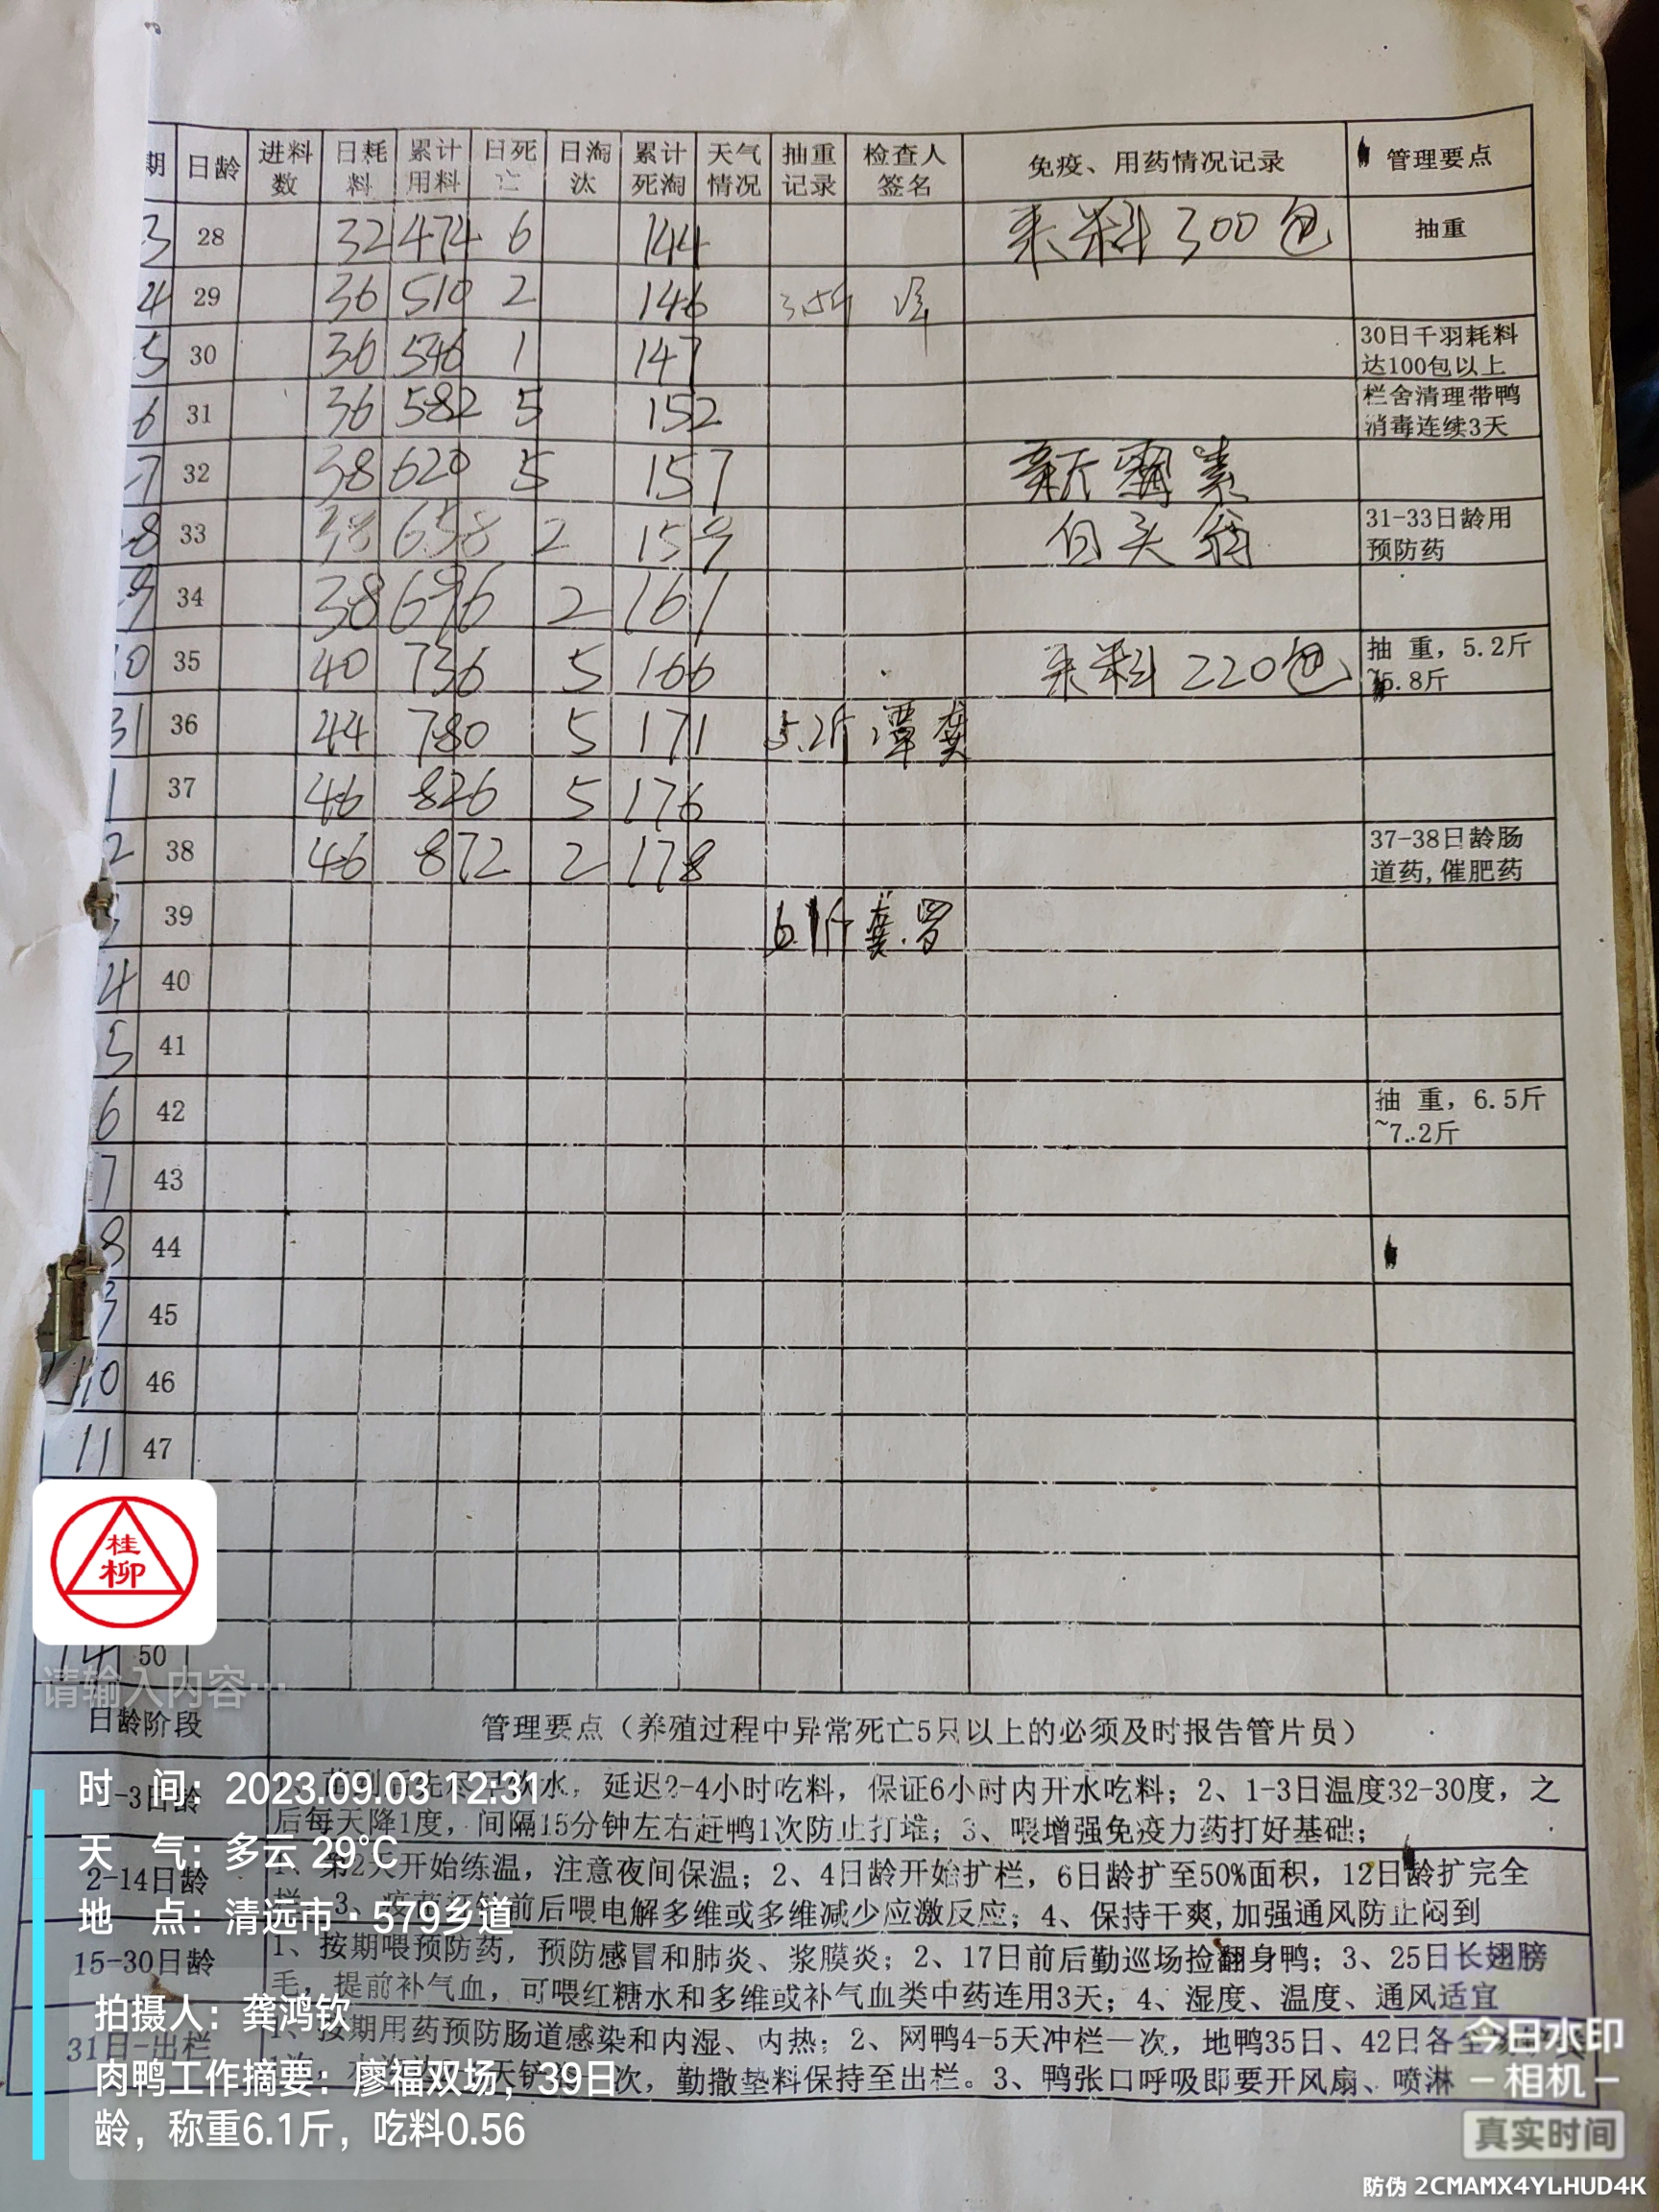 期 日龄 进料数 日耗料 累计用料 日死亡 日淘汰 累计死淘 天气情况 抽重记录 检查人签名 免疫、用药情况记录 管理要点
3 28 32 474 6 144 来料300包 抽重
4 29 36 510 2 146 3.5斤
5 30 36 546 1 147 30日千羽耗料达100包以上
6 31 36 582 5 152 栏舍清理带鸭消毒连续3天
7 32 38 620 5 157 新霉素
8 33 38 658 2 159 白头翁 31-33日龄用预防药
9 34 38 696 2 161
10 35 40 736 5 166 来料220包 抽 重，5.2斤~5.8斤
31 36 44 780 5 171 5.2斤 潭 龚
1 37 46 826 5 176
2 38 46 872 2 178 37-38日龄肠道药,催肥药
39 6.1斤 龚.罗
4 40
5 41
6 42 抽 重，6.5斤~7.2斤
7 43
8 44
45
10 46
11 47
桂柳
14 50
请输入内容…
日龄阶段 管理要点（养殖过程中异常死亡5只以上的必须及时报告管片员）
-3日龄 水，延迟2-4小时吃料，保证6小时内开水吃料；2、1-3日温度32-30度，之
后每天降1度，间隔15分钟左右赶鸭1次防止打堆；3、喂增强免疫力药打好基础；
2-14日龄 1、第2天开始练温，注意夜间保温；2、4日龄开始扩栏，6日龄扩至50%面积，12日龄扩完全
栏；3、疫苗打针前后喂电解多维或多维减少应激反应；4、保持干爽,加强通风防止闷到
15-30日龄 1、按期喂预防药，预防感冒和肺炎、浆膜炎；2、17日前后勤巡场捡翻身鸭；3、25日长翅膀
毛，提前补气血，可喂红糖水和多维或补气血类中药连用3天；4、湿度、温度、通风适宜
31日-出栏 1、按期用药预防肠道感染和内湿、内热；2、网鸭4-5天冲栏一次，地鸭35日、42日各全
次，勤撒垫料保持至出栏。3、鸭张口呼吸即要开风扇、喷淋
时 间：2023.09.03 12:31
天 气：多云 29°C
地 点：清远市·579乡道
拍摄人：龚鸿钦
肉鸭工作摘要：廖福双场，39日
龄，称重6.1斤，吃料0.56
今日水印
相机
真实时间
防伪 2CMAMX4YLHUD4K